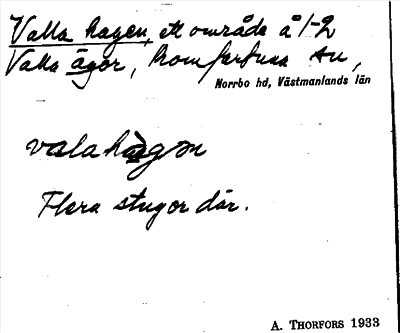 Valla hagen, ett område å 1-2
Valla ägor, Romfartuna sn,
Norrbo hd, Västmanlands län
valahagen
Flera stugor där.
A. THORFORS 1933